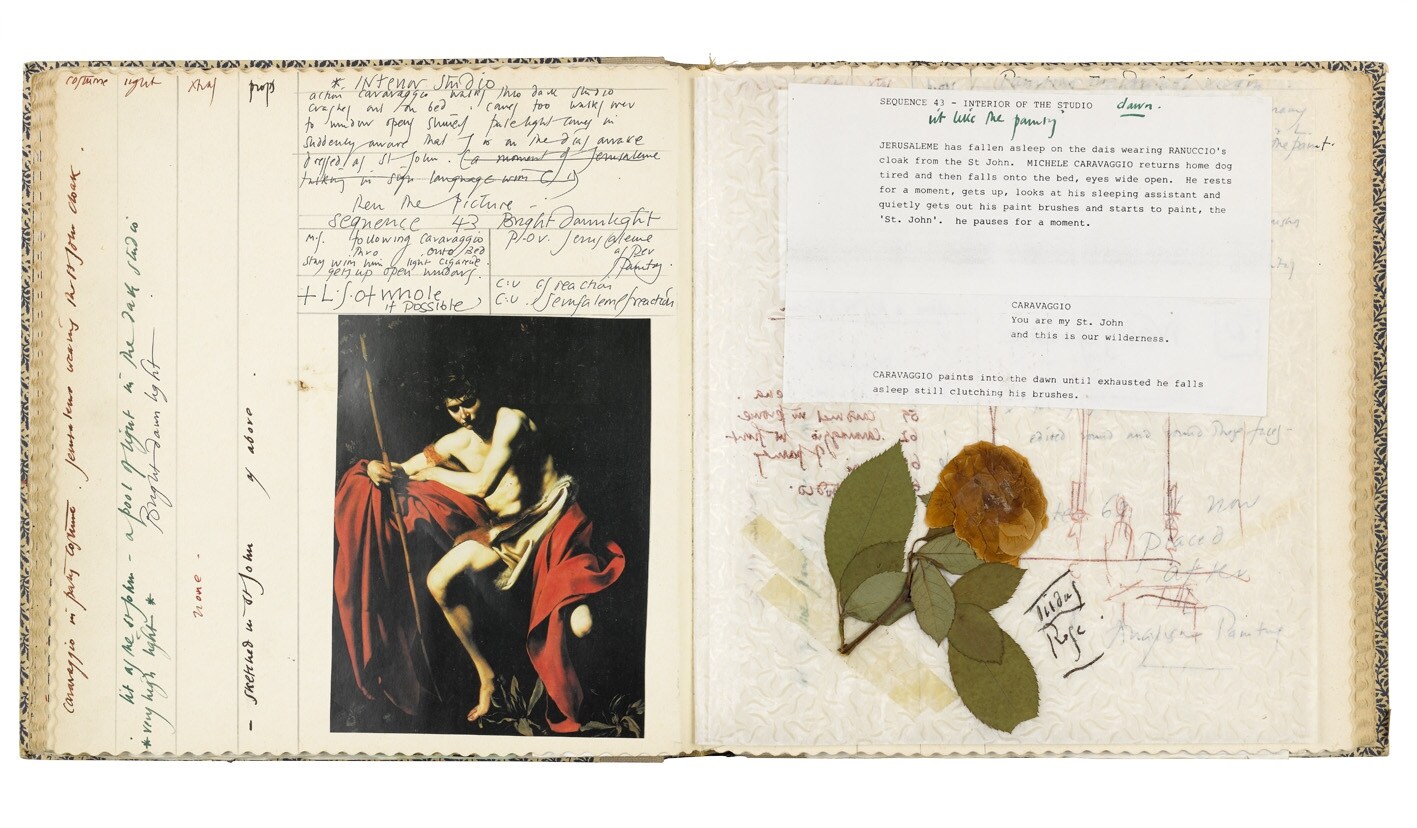 costume light xtras props
* Interior Studio
action Caravaggio walks thro dark studio
crashes out on bed. comes too walks over
to window opens shutters pale light comes in
suddenly aware that J is on the dais awake
dressed as St John. (a moment of Jerusaleme
talking in sign language with C)
then the picture
sequence 43 Bright Dawnlight
M.S. following Caravaggio
thro onto bed
stay with him light cigarette
gets up open windows.
+ L.S. of whole
if possible
P.O.V. Jerusaleme
as per
Painting.
C.U C's reaction
C.U. Jerusaleme's reaction
Caravaggio in party costume. Jerusaleme wearing the St John cloak.
lit as the St John - a pool of light in the dark studio
* very high light *
Bright dawn light
none -
- sketched in St John as above.
SEQUENCE 43 - INTERIOR OF THE STUDIO dawn.
lit like the painting
JERUSALEME has fallen asleep on the dais wearing RANUCCIO's
cloak from the St John. MICHELE CARAVAGGIO returns home dog
tired and then falls onto the bed, eyes wide open. He rests
for a moment, gets up, looks at his sleeping assistant and
quietly gets out his paint brushes and starts to paint, the
'St. John'. he pauses for a moment.
CARAVAGGIO
You are my St. John
and this is our wilderness.
CARAVAGGIO paints into the dawn until exhausted he falls
asleep still clutching his brushes.
Tilda's
Rose.
now
placed
after
the
Painting